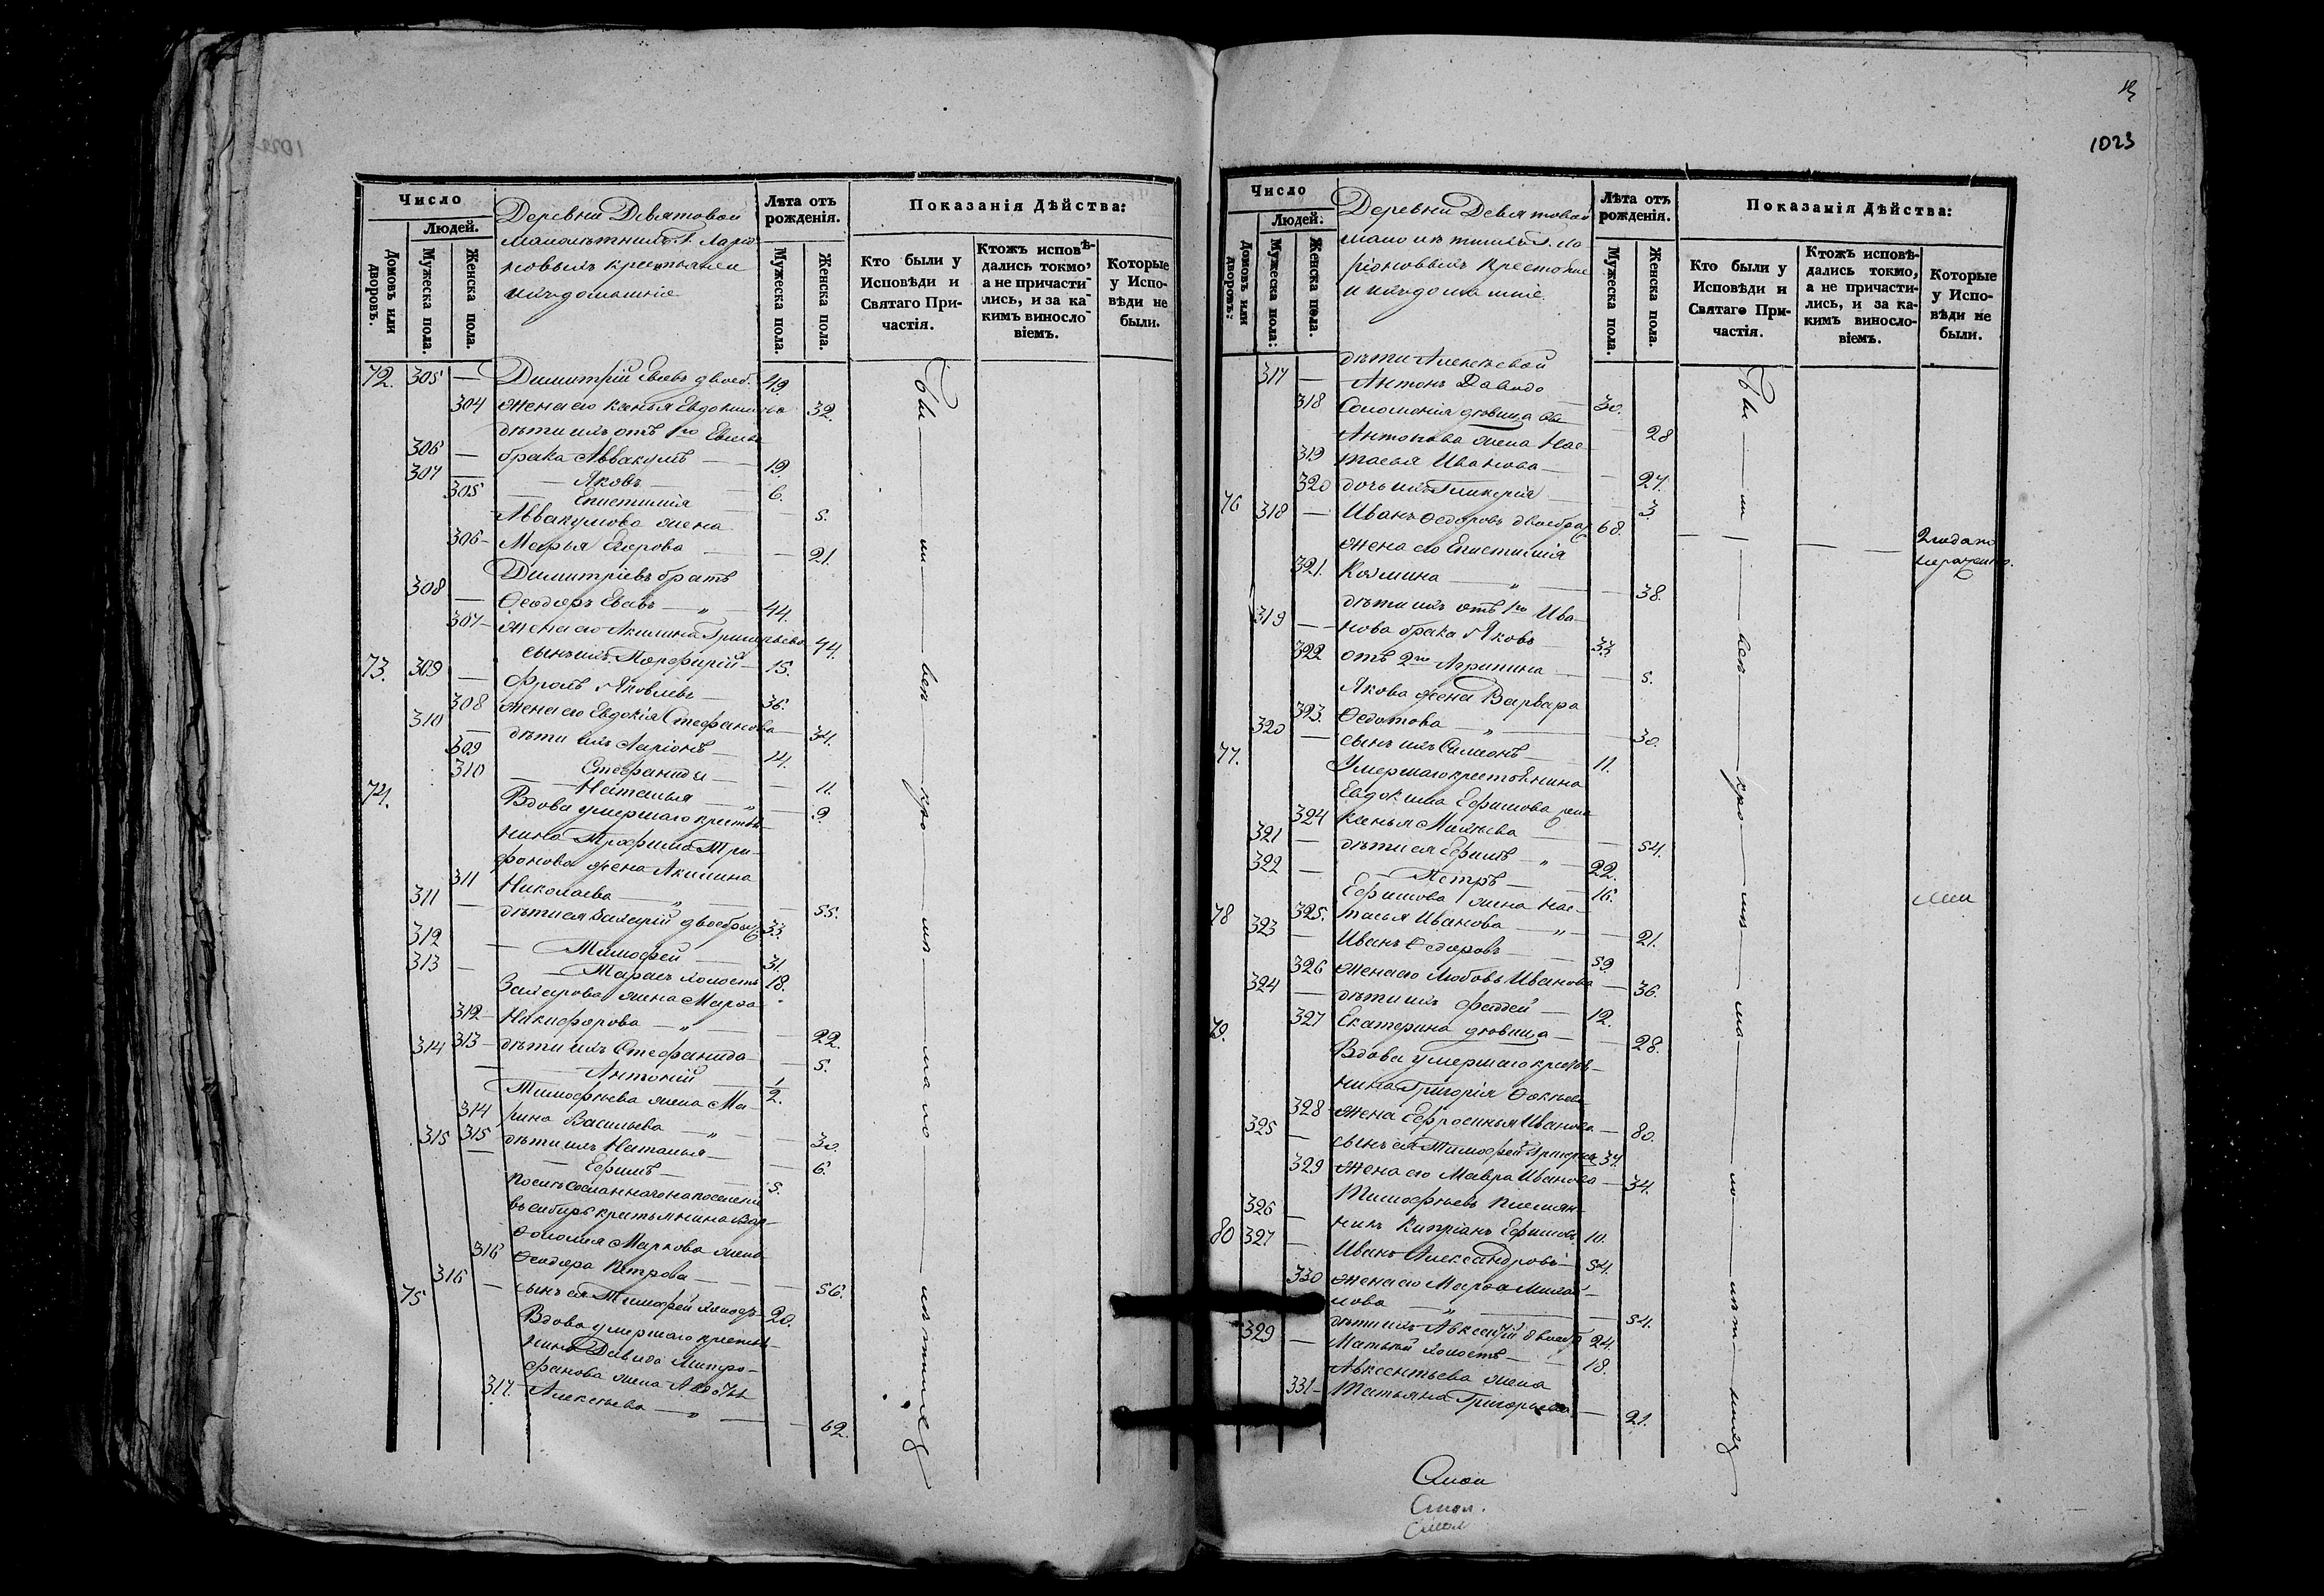 Число
Людей.
Домовъ или дворовъ.
Мужеска пола.
Женска пола.
Деревни Девятовой
малолѣтнихъ Г. Ларіо-
новыхъ крестьяне и
ихъ домашніе
Лѣта отъ рожденія.
Мужеска пола.
Женска пола.
Показанія Дѣйства:
Кто были у Исповѣди и Святаго Причастія.
Ктожъ исповѣдались токмо, а не причастились, и за какимъ винословіемъ.
Которые у Исповѣди не были.
72. 305 — Димитрій Евсевъ двоеб. 49.
304 жена его Ксенья Евдокимова 32.
дѣти ихъ отъ 1го
306 — брака Аввакумъ — 19.
307 — Яковъ — 6.
305 Епистимія — 5.
Аввакумова жена
306 — Марья Егорова — 21.
Димитріевъ братъ
308 — Ѳеодоръ Евсевъ — 44.
307 — жена его Акилина Григорьева 44.
сынъ ихъ Порфирій — 15.
73. 309 — Фролъ Яковлевъ — 36.
308 жена его Евдокія Стефанова — 34.
310 — дѣти ихъ Ларіонъ — 14.
309 Стефанида — 11.
310 — Наталья — 9.
74. Вдова умершаго крестья-
нина Трофима Три-
фонова жена Акилина
311 Николаева — 55.
311 — дѣти ея Захарій двоебрач. 33.
312 — Тимофей — 31.
313 — Тарасъ холостъ 18.
Захарова жена Марѳа
312 — Никифорова — 22.
313 — дѣти ихъ Стефанида — 5.
314 — Антоній — 1/2.
Тимофѣева жена Ма-
314 рина Васильева — 30.
315 дѣти ихъ Наталья — 6.
315 — Ефимъ — 5.
Послѣ сосланнаго на поселеніе
въ сибирь крестьянина Вар-
ѳоломея Маркова жена
316 Ѳеодора Петрова — 56.
316 — сынъ ея Тимофей 20.
75 Вдова умершаго крестья-
нина Давида Митро-
фанова жена
317. Алексѣева — 62.
Бы — ли — всѣ — кро — мѣ — мало — лѣтнихъ
1023
Число
Людей.
Домовъ или дворовъ.
Мужеска пола.
Женска пола.
Деревни Девятовой
малолѣтнихъ Г. Ла-
ріоновыхъ крестьяне
и ихъ домашніе.
Лѣта отъ рожденія.
Мужеска пола.
Женска пола.
Показанія Дѣйства:
Кто были у Исповѣди и Святаго Причастія.
Ктожъ исповѣдались токмо, а не причастились, и за какимъ винословіемъ.
Которые у Исповѣди не были.
дѣти Алексѣевой
317 — Антонъ Давидо — 30.
318 Соломонія дѣвица — 28
Антонова жена Нас-
319 тасья Иванова — 27.
320 дочь ихъ Гликерія — 3.
76 318 — Иванъ Ѳедоровъ двоебрач 68.
жена его Епистимія
321. Козмина — 38.
дѣти ихъ отъ 1го Ива-
319 — нова брака Яковъ 33.
322 отъ 2го Агрипина — 5.
Якова жена Варвара
323. Ѳедотова — 30.
320 — сынъ ихъ Симеонъ — 11.
77. Умершаго крестьянина
Евдокима Ефимова жена
324 Ксенья Михѣева — 54.
321 — дѣти ея Ефимъ — 22.
322 — Петръ — 16.
Ефимова жена Нас-
325. тасья Иванова — 21.
78 323 — Иванъ Ѳедоровъ — 59.
326 жена его Любовь Иванова — 36.
324 — дѣти ихъ Фаддей — 12.
327 Екатерина дѣвица — 28.
79. Вдова умершаго крестья-
нина Григорія
328 жена Ефросинья Иванова — 80.
325 — сынъ ея Тимофей Григорьевъ 37.
329 жена его Мавра Иванова — 34.
Тимофѣевъ племян-
326 — никъ Кипріанъ Ефимовъ 10.
80 327 — Иванъ Александровъ 54.
330 жена его Марѳа Михай-
лова — 54.
дѣти ихъ Авксентій двоебр 24.
329 — Матвѣй холостъ — 18.
Авксентьева жена
331 — Татьяна Григорьева — 21.
Бы — ли — всѣ — кро — мѣ — ма — ло — лѣт — нихъ